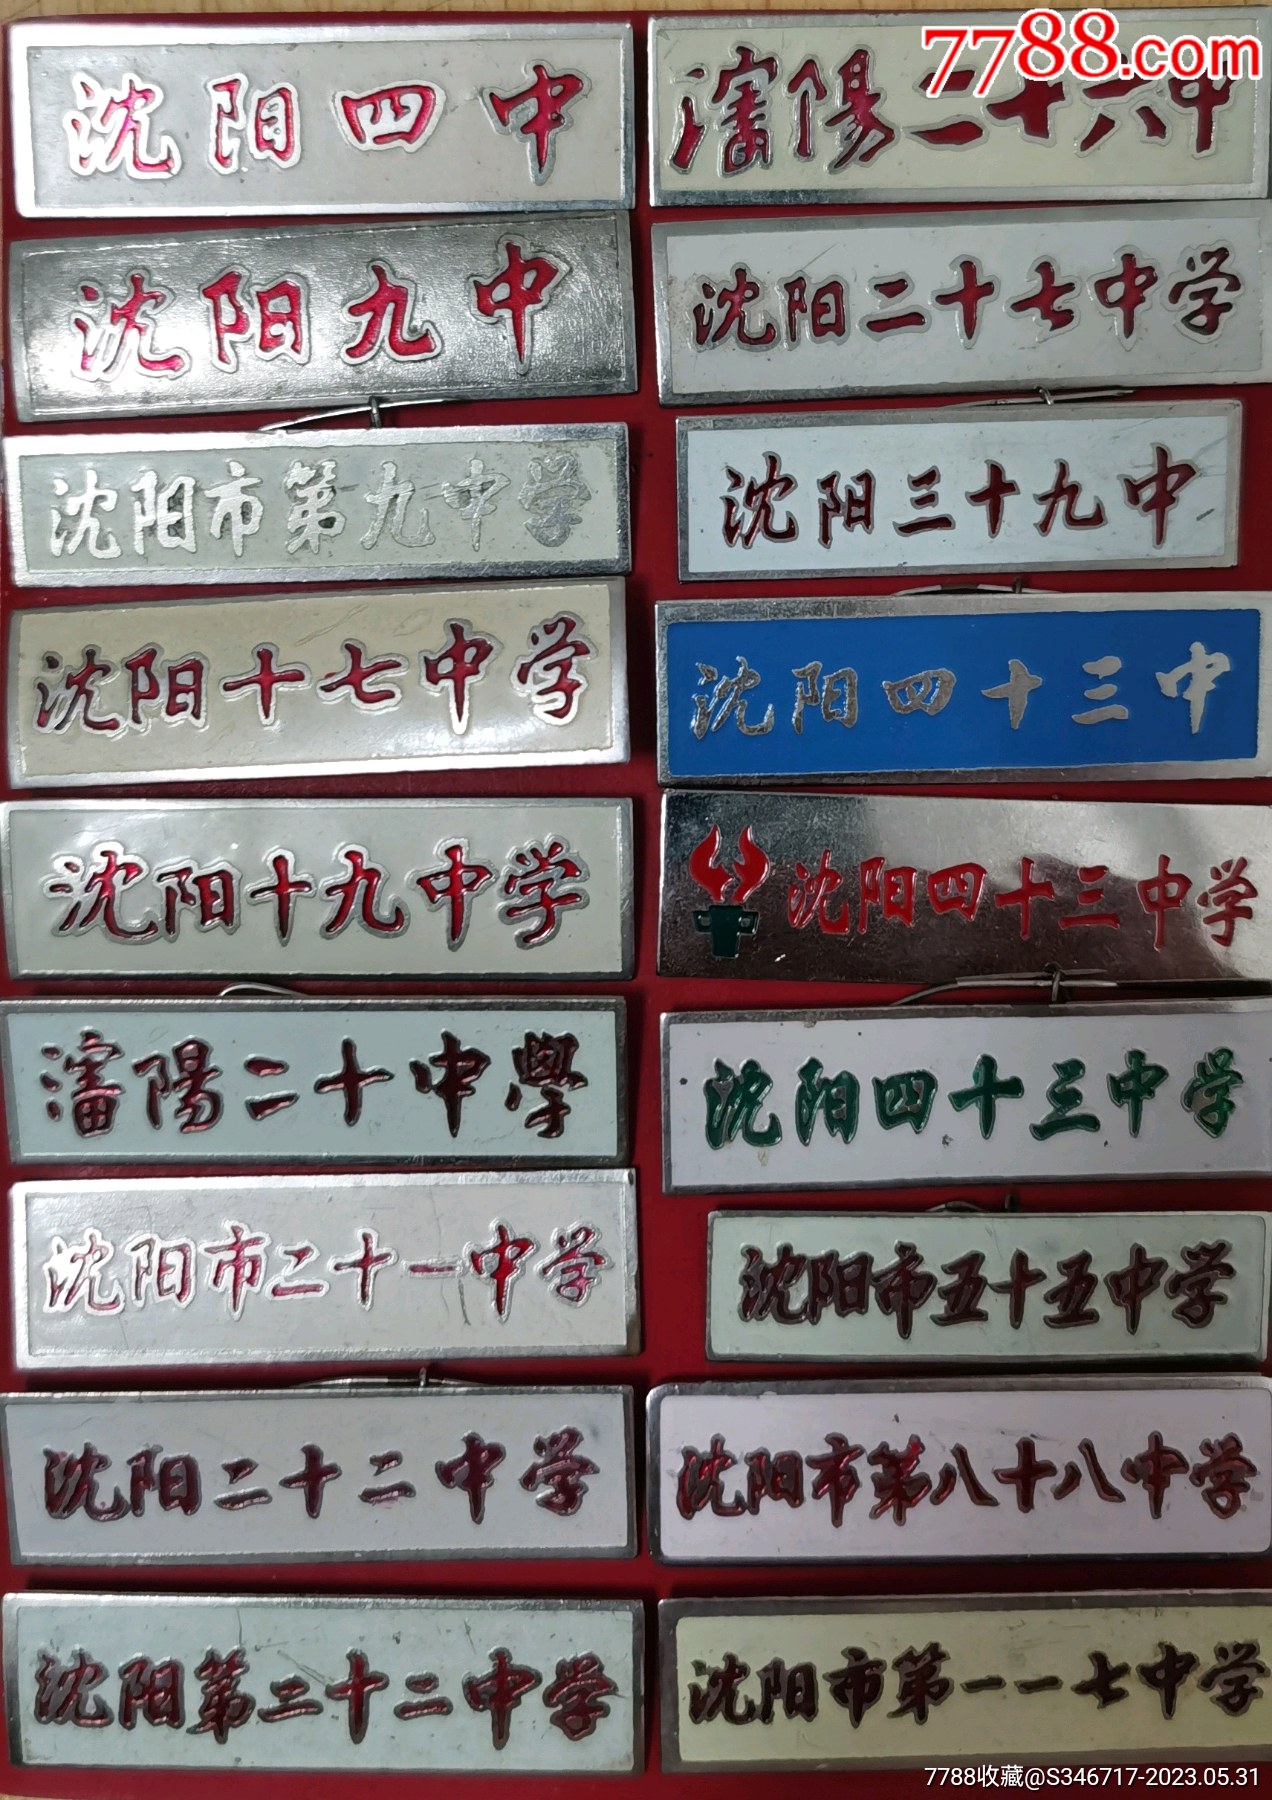 沈阳四中
沈阳九中
沈阳市第九中学
沈阳十七中学
沈阳十九中学
瀋陽二十中學
沈阳市二十一中学
沈阳二十二中学
沈阳第三十二中学
7788.com
瀋陽二十六中
沈阳二十七中学
沈阳三十九中
沈阳四十三中
沈阳四十三中学
沈阳四十三中学
沈阳市五十五中学
沈阳市第八十八中学
沈阳市第一一七中学
7788收藏@S346717-2023.05.31